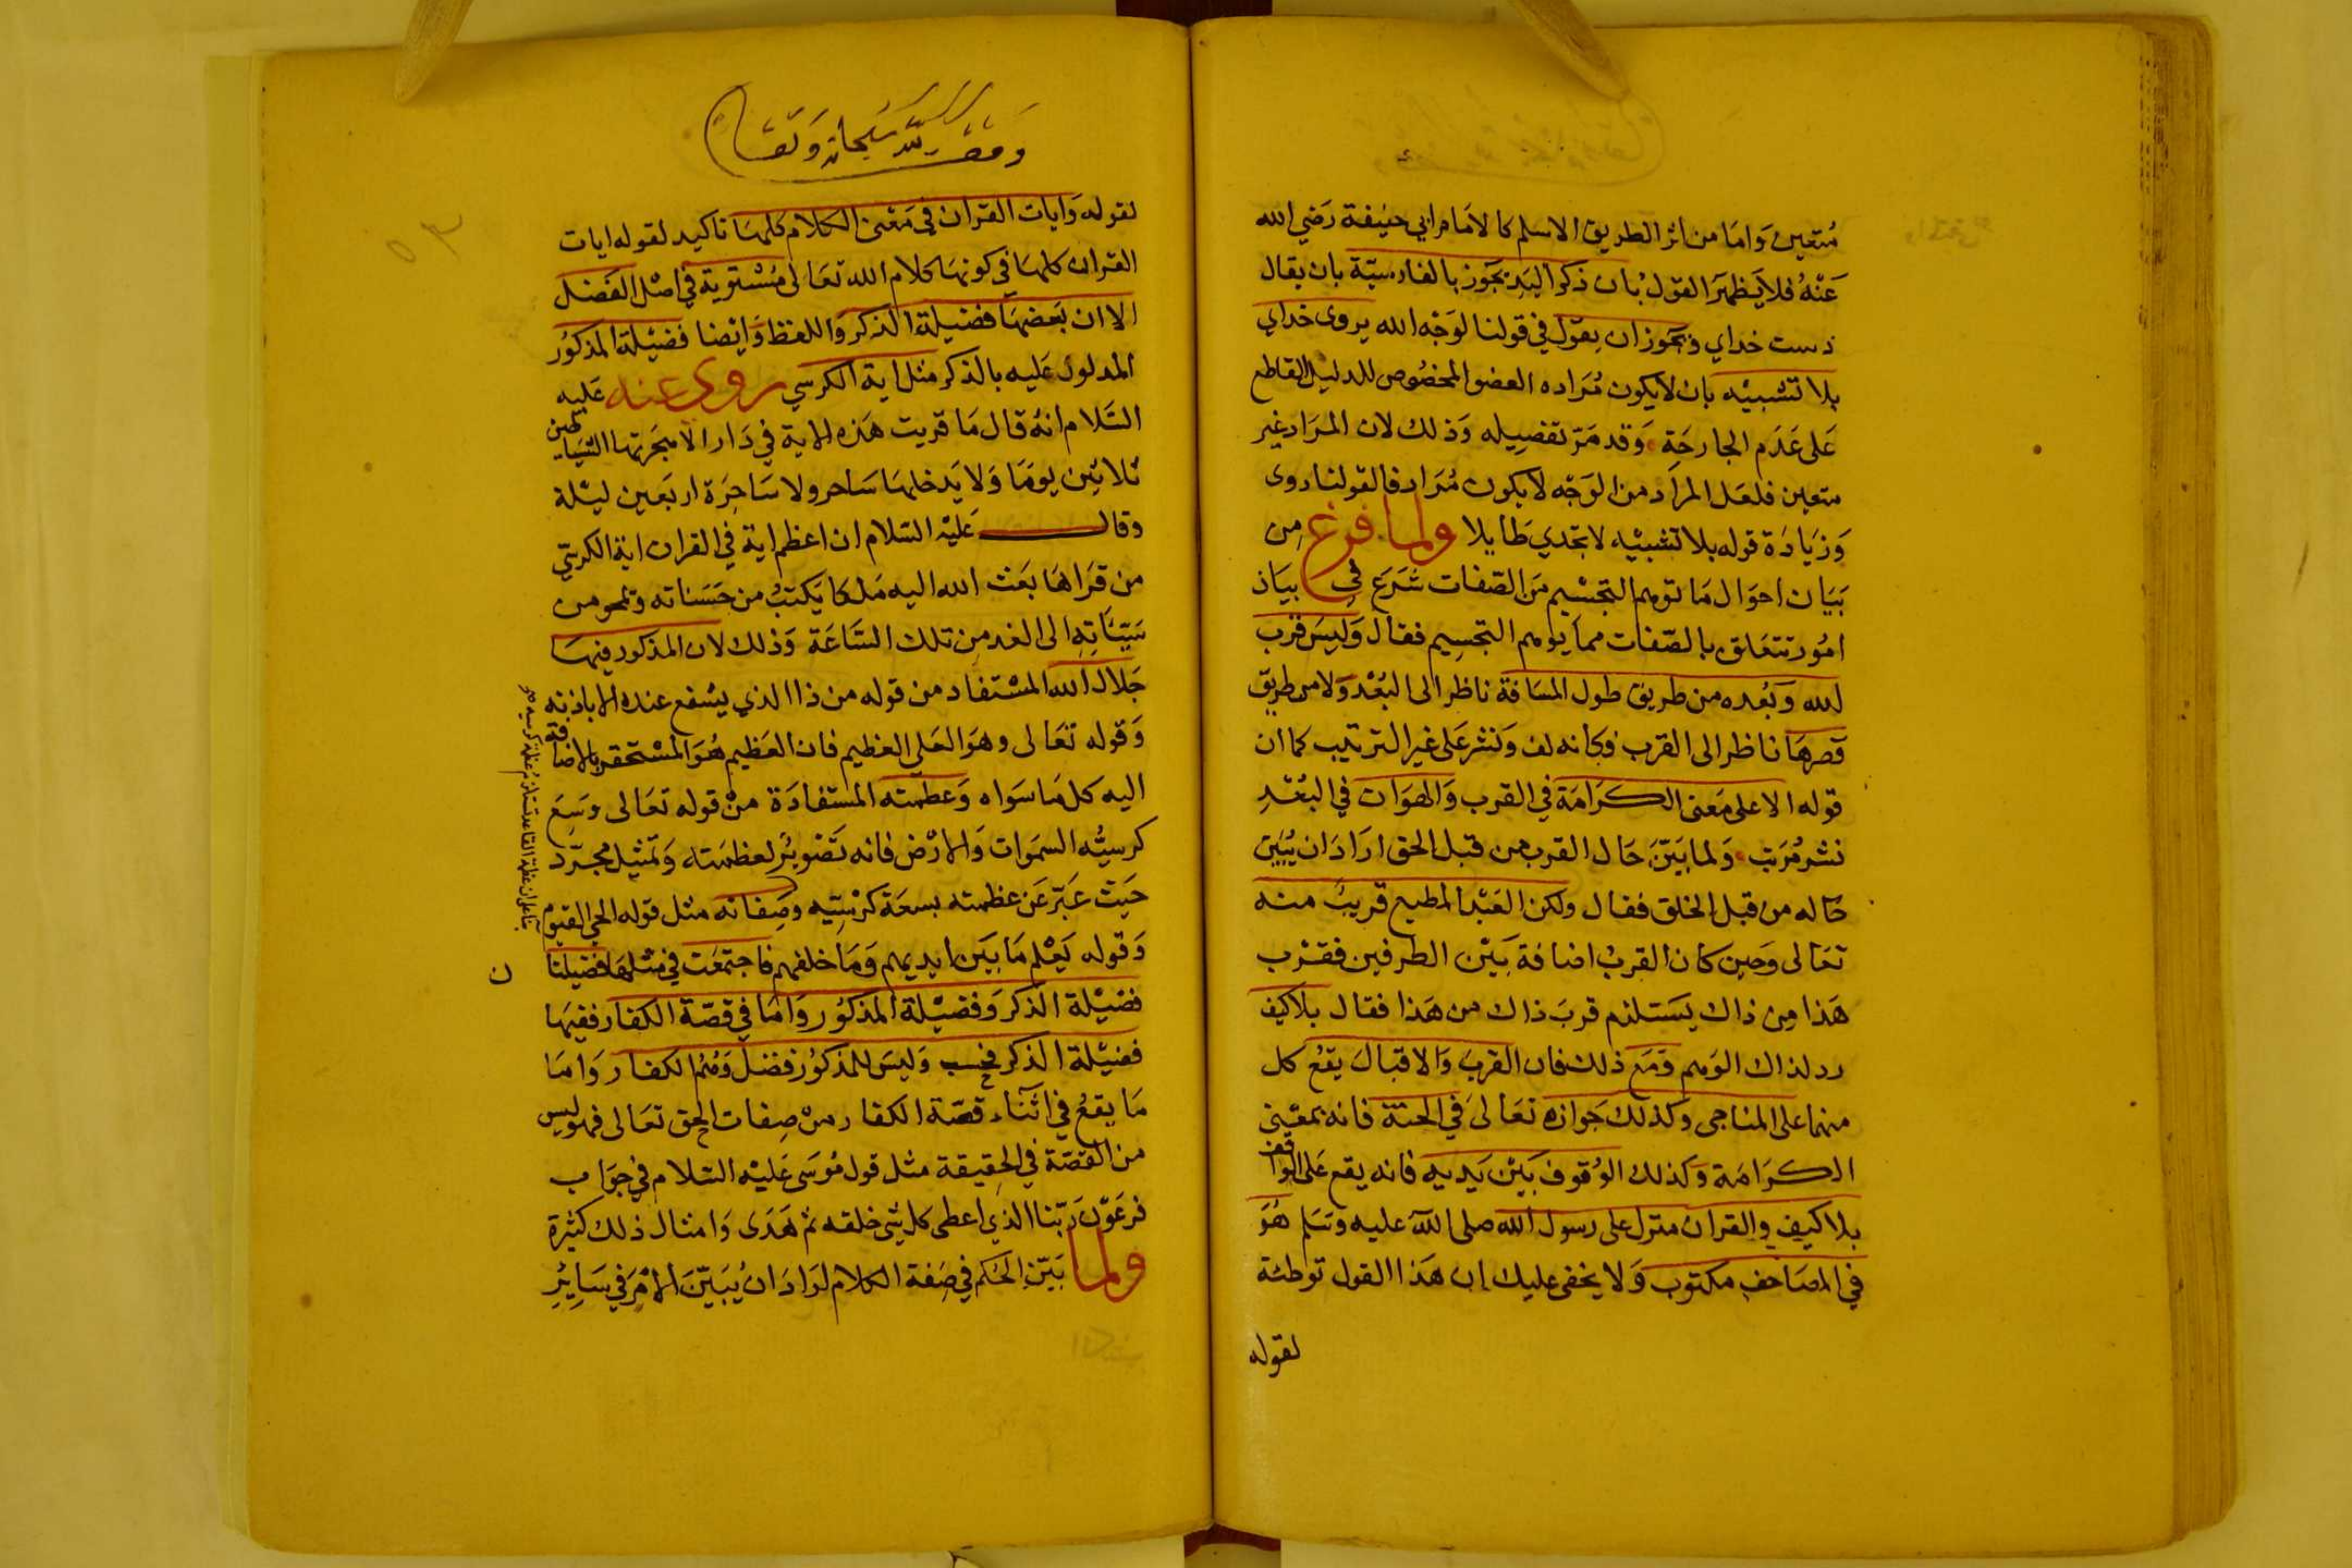 متعين وَامَا من اثر الطريق الاسلم كالامَام ابي حنيفة رَضي الله
عَنْهُ فلا يَظهَر القول بُان ذكر اليَد يجوز بالفارسيّة بان يقال
دست خداي ويجوز ان يقول في قولنا لوَجْه الله بروى خداي
بلا تشبيْه بان لا يكون مُرَاده العضو المخصُوص للدليل القاطع
عَلى عَدَم الجارحَة وَقد مَرّ تفصيله وَذلك لان المرَاد غير
متعين فلعَل المرَاد من الوَجْه لا يكون مُرَادفا لقولنا روى
وَزيَادَة قوله بلا تشبيْه لا تجدي طَايلا ولما فرغ مِن
بَيَان احوَال مَا توهم التجسْيم مَن الصّفات شَرَعَ في بيَان
امُور تتعَلق بالصّفات مما يوهم التجسِيم فقال وَليسَ قرب
لله وَبُعده من طريق طول المسَافة ناظر الى البُعْد وَلا من طريق
قصرهَا ناظر الى القرب فكانه لف وَنشر عَلى غير الترتيب كما ان
قوله الا على مَعنى الكرَامَة في القرب وَالهوَان في البُعْدِ
نشر مُرَتب وَلما بَيّن حَال القرب من قبل الحق ارَادَ ان يُبَيّن
حَاله من قبل الخلق فقال ولكن العَبْد المطيع قريبٌ منه
تعَالى وَحين كان القربُ اضافة بَيْن الطرفين فقرْب
هَذا مِن ذاك يَسَتلزم قربَ ذاك من هَذا فقال بلا كيف
رد لذاك الوَهم وَمَع ذلك فان القربَ وَالاقبال يقعُ كل
منهما على المناجى وكذلك جَوازه تعَالى في الجنة فانه بمعَنى
الكرَامَة وَكذلك الوُقوف بَيْن يَديه فانه يقع عَلى الواقف
بلا كيف والقران منزل على رسول الله صلى الله عليه وَسَلم هُوَ
في المصَاحف مكتوب وَلا يخفى عليك ان هَذا القول توطئة
لقوله
وَقف لله سُبحانه وَتعَالى
لقوله وَايات القران في مَعْنى الكلام كلهَا تاكيد لقوله ايات
القران كلهَا في كونهَا كلام الله تعَالى مُسْتوية في اصْل الفَضل
الا ان بَعضهَا فضيلة الذكر وَاللفظ وَايْضا فضيْلة المذكوُر
المدلول عَليه بالذكر مثل اية الكرسي روى عنه عَليه
السَّلام انهُ قال مَا قريت هَذه الاية في دَار الا هجَرتها الشيَاطين
ثلاثِين يومَا وَلا يَدخلهَا سَاحر ولا سَاحِرَة اربَعين ليْلة
وقال عَليْه السّلام ان اعظم اية في القران اية الكرسيّ
من قرَاهَا بَعَث الله اليه مَلكا يَكتبُ من حَسَناته ويمحو من
سَيّئاتِهِ الى الغد مِن تلك السَّاعَة وَذلك لان المذكور فيهَا
جَلال الله المسْتفاد من قوله من ذا الذي يشفع عنده الا باذنه
وَقوله تعَالى وهوَ العَلي العَظيم فان العَظيم هُوَ المسْتحقر بالاضافة
اليه كل مَا سَوَاه وَعظمته المستفادَة منْ قوله تعَالى وَسِعَ
كرسيُّه السمَوات وَالارْض فانه تَصْويْرٌ لعظمَته وَتمثيل مجرّد
حَيث عَبّر عَن عظمته بسعَة كرْسيّه وصِفاته مثل قوله الحي القيوم
وَقوله يَعْلم مَا بَيَن ايديهم وَمَا خلفهم فاجتمعَت في مثلهَا فضيلتا
ن
فضيْلة الذكر وَفضيْلة المذكوُر وَامَّا في قصّة الكفار ففيهَا
فضيْلة الذكر فحسب وَليسَ للمذكوُر فضل وَهُمْ الكفار وَامَا
مَا يقعُ في اثنَاء قصّة الكفار منْ صِفات الحق تعَالى فهو ليس
من القصّة في الحقيقة مثل قول مُوسَى عَليْه السّلام في جوَاب
فرعَوْن رَبّنا الذي اعطى كل شئ خلقه ثم هَدَى وَامثال ذلك كثيرة
ولما بَيّن الحكم في صَفة الكلام ارَادَ ان يُبَيّنَ الامْرَ في سَايْرِ